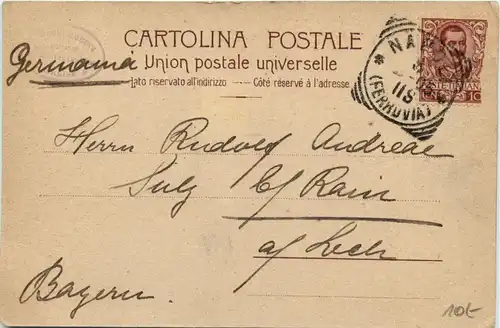 CARTOLINA POSTALE
Germania
Union postale universelle
Lato riservato all'indirizzo --- Côté réservé à l'adresse
(FERROVIA)
10
Herrn Rudolf Andreae
Sulz b/Rain
a/Lech
Bayern.